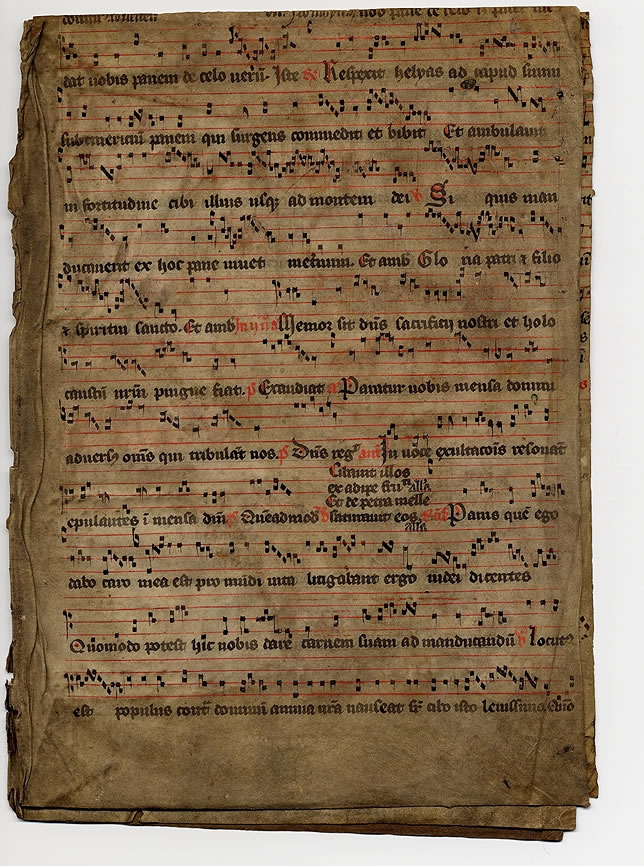 dat vobis panem de celo verū Iste Respexit helyas ad capud suum
subcinericiū panem qui surgens commedit et bibit Et ambulauit
in fortitudine cibi illius usq; ad montem dei Si quis man
ducauerit ex hoc pane viuet in eternum. Et amb Glo ria patri ⁊ filio
⁊ spiritui sancto. Et amb Memor sit dn̄s sacrificij nostri et holo
caustū nr̄m pingue fiat. p̄ Exaudiat Paratur vobis mensa domini
aduersꝰ om̄s qui tribulāt nos. p̄ Dn̄s reg In voce exultacōis resonāt
Cibauit illos
ex adipe fru alla
Et de petra melle
epulantes ī mensa dn̄i Queadmod saturauit eos alla Panis quē ego
dabo caro mea est pro mūdi vita litigabant ergo iudei dicentes
Quomodo potest hic nobis dare carnem suam ad manducandū locutꝰ
est populus dominū anima nr̄a nauseat cibo isto leuissimo Quo